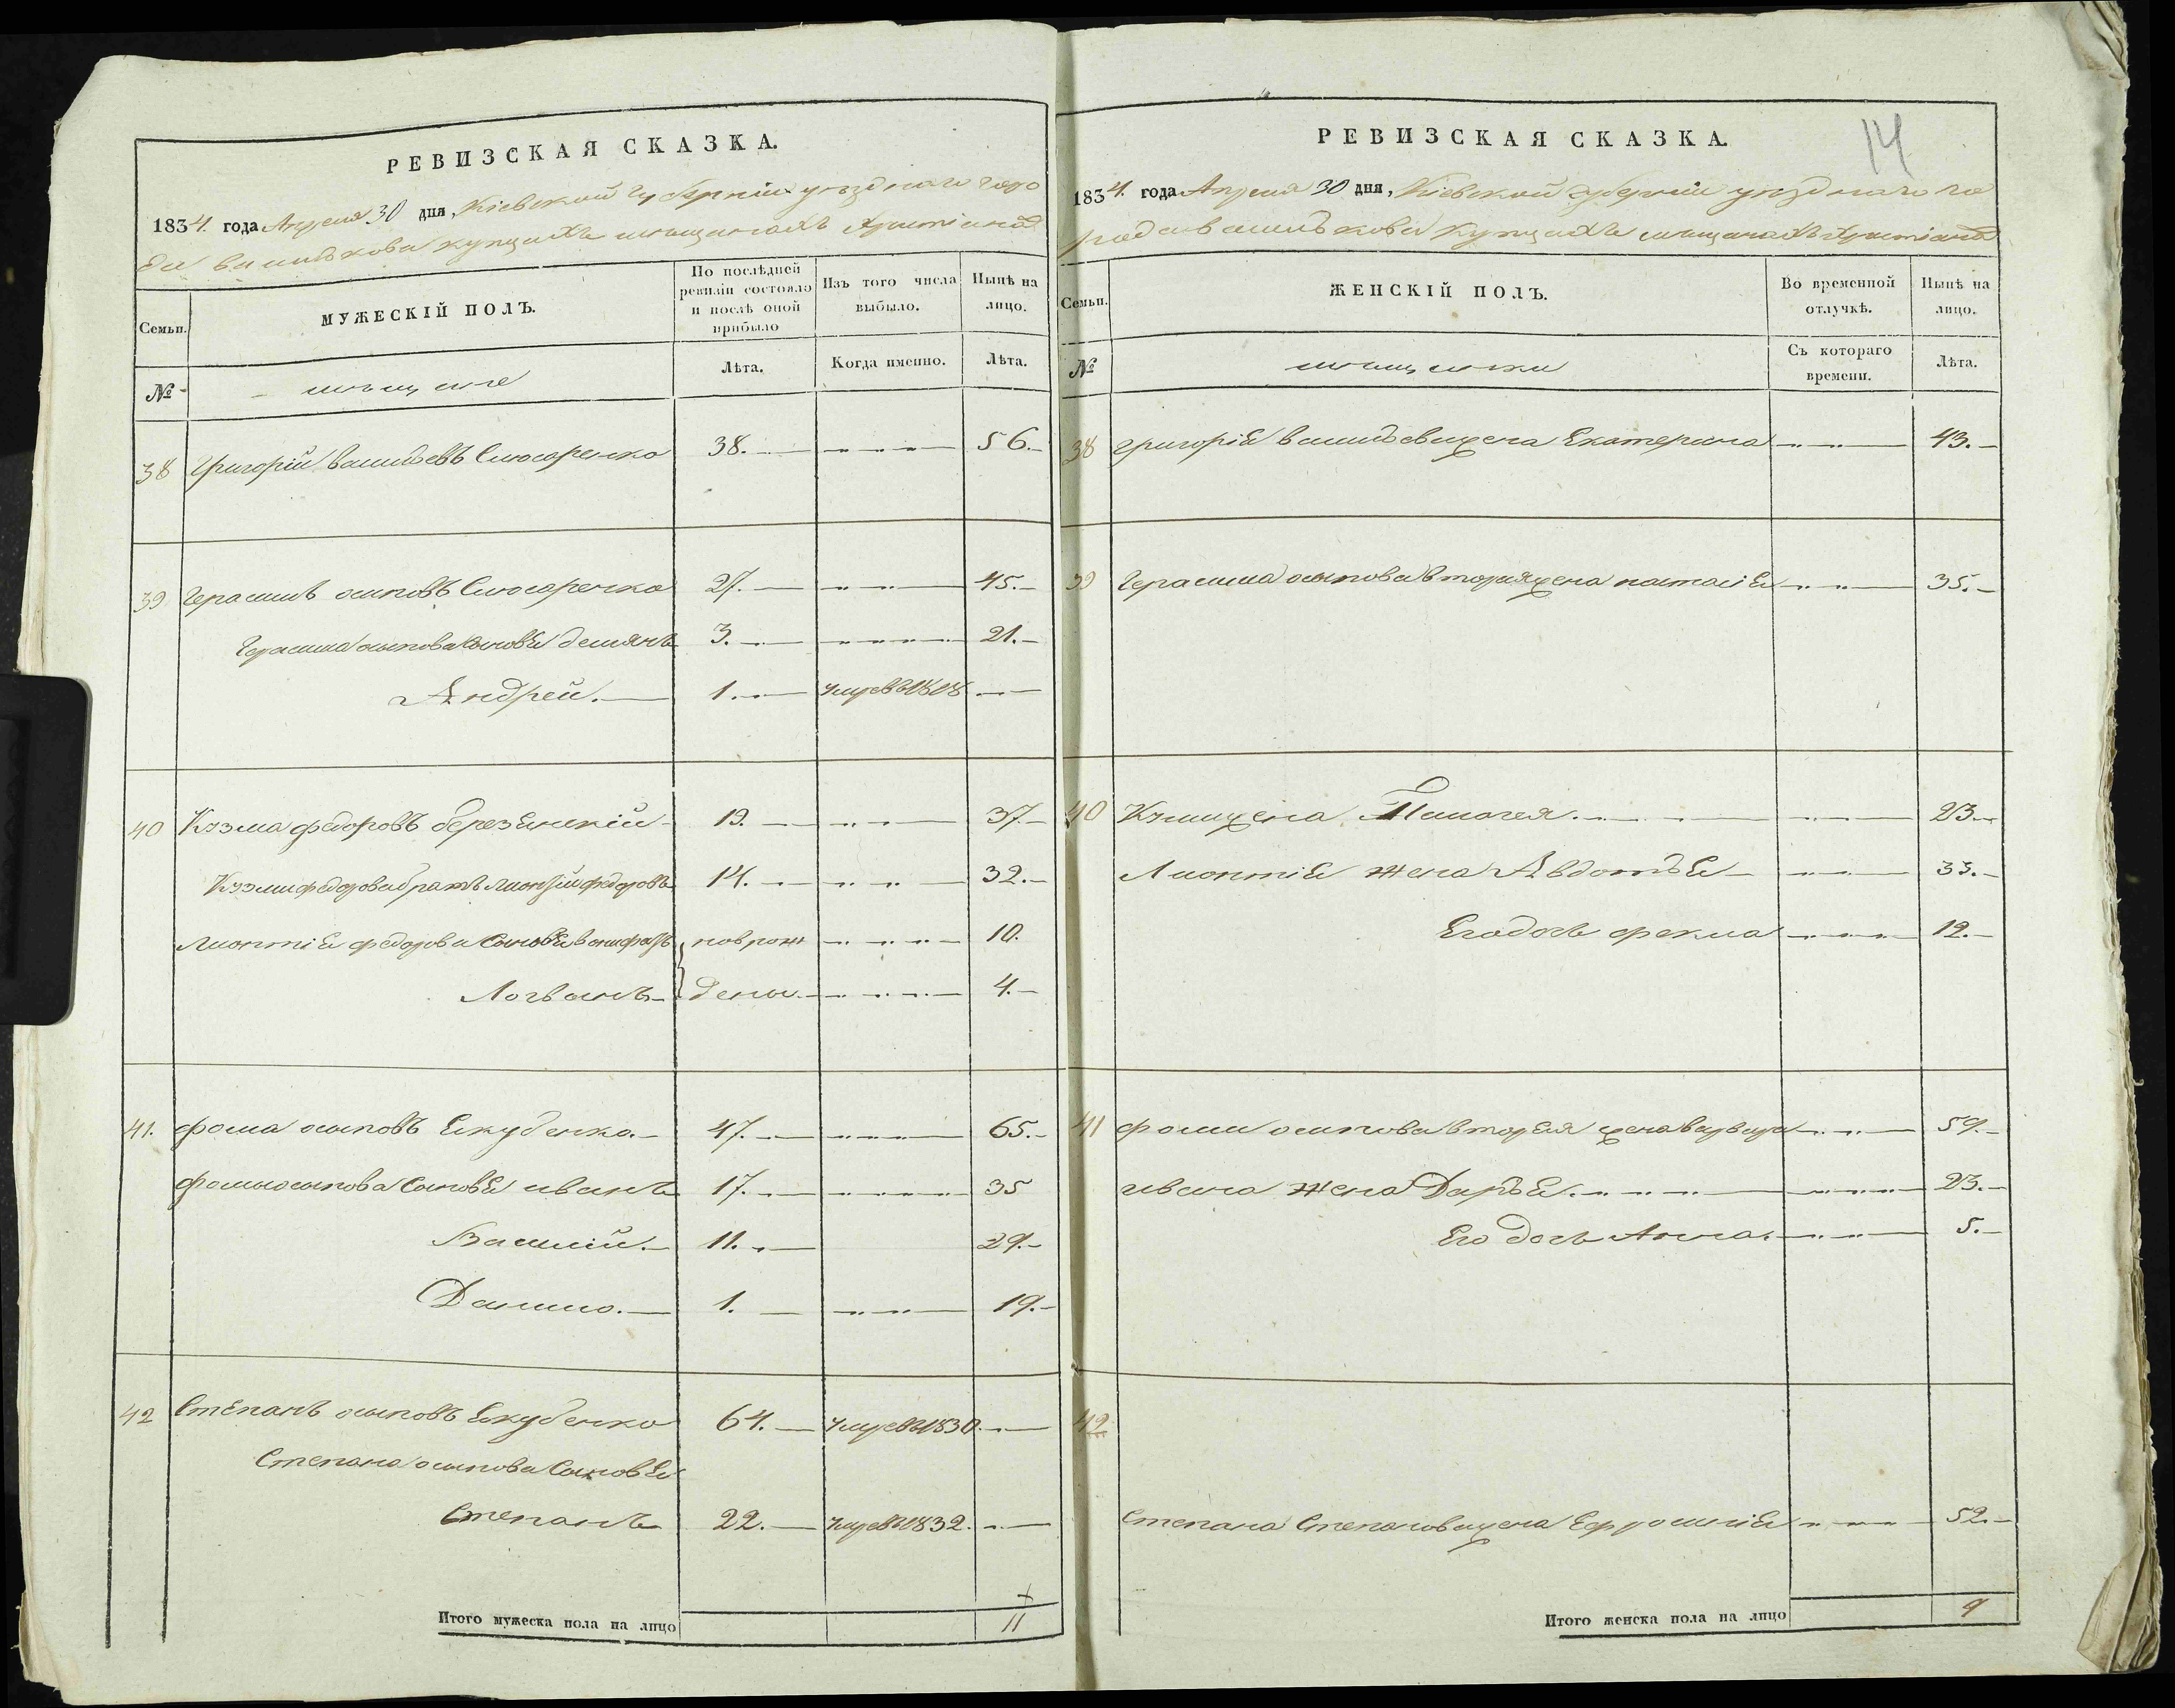 РЕВИЗСКАЯ СКАЗКА.
1834. года Апреля 30 дня, Кіевской Губерніи уѣзднаго горо
да василькова купцахъ мѣщанахъ Христіанах
Семьи.
МУЖЕСКІЙ ПОЛЪ.
По послѣдней ревизіи состояло и послѣ оной прибыло
Изъ того числа выбыло.
Нынѣ на лицо.
№
мѣщане
Лѣта.
Когда именно.
Лѣта.
38 Григорій васильевъ Слюсаренко 38. 56.
39 Герасимъ осиповъ Слюсаренко 27. 45.
Герасима осипова Сыновья демянъ 3. 21.
Андрей. 1. умре въ 1818
40 Кузма федоровъ березинскій 19. 37.
Кузмы федорова братъ Лионтій федоровъ 14. 32.
Лионтія федорова Сыновья 10.
Логвинъ 4.
новрож
дены.
41. фома осиповъ Якубенко 47. 65.
фомы осипова Сыновья иванъ 17. 35
Василій. 11. 29.
Данило. 1. 19.
42 Степанъ осиповъ Якубенко 64. умре въ 1830.
Степана осипова Сыновья
Степанъ 22. умре въ 1832.
Итого мужеска пола на лицо 11
РЕВИЗСКАЯ СКАЗКА.
14
1834. года Апреля 30 дня, Кіевской Губерніи уѣзднаго го
рода василькова Купцахъ мѣщанахъ Христіанах
Семьи.
ЖЕНСКІЙ ПОЛЪ.
Во временной отлучкѣ.
Нынѣ на лицо.
№
мѣщанки
Съ котораго времени.
Лѣта.
38 Григорія васильева жена Екатерина 43.
39 Герасима осипова вторая жена настасія 35.
40 Кузмы жена Пелагея. 23.
Лионтія жена Авдотья 33.
Его дочь фекла 12.
41 фомы осипова вторая жена варвара 59.
ивана жена Дарья. 23.
Его дочь Анна. 5.
42
Степана Степанова жена Ефросинія 52.
Итого женска пола на лицо 9